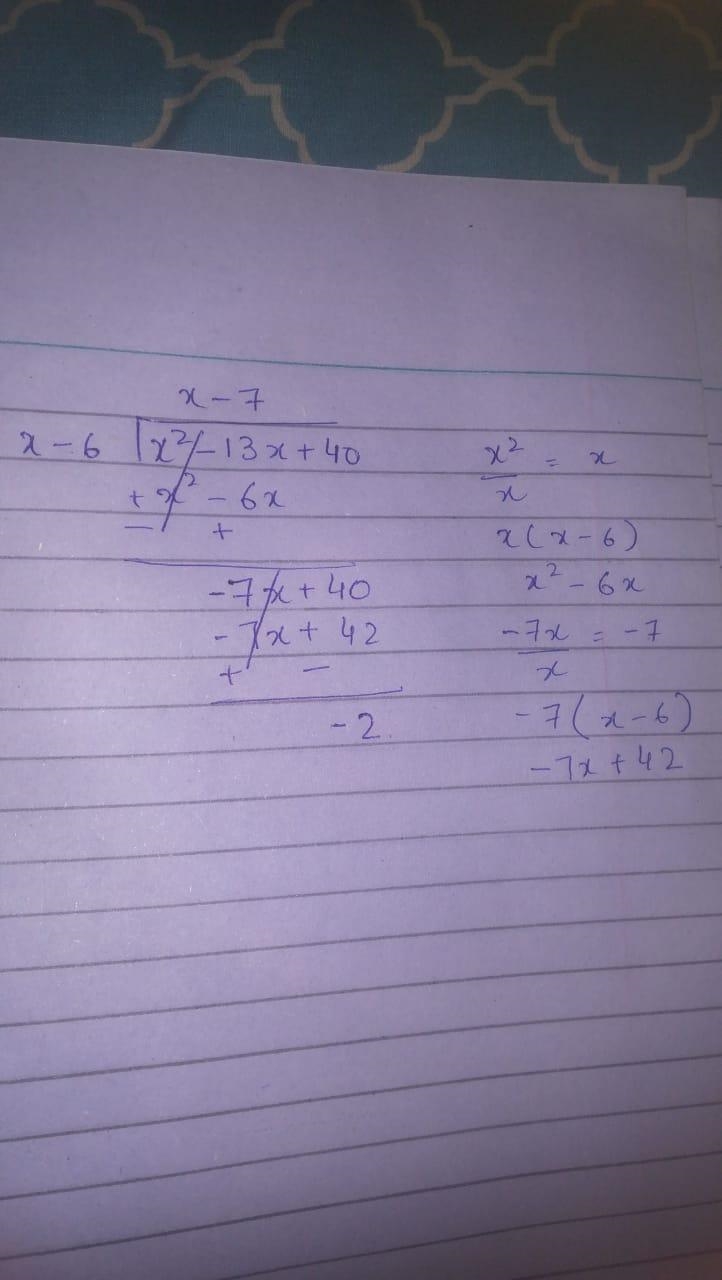 x - 7
x - 6 x² - 13x + 40
+ x² - 6x
- +
-7x + 40
-7x + 42
+ -
-2.
x² = x
x
x(x-6)
x² - 6x
-7x = -7
x
-7(x-6)
-7x + 42